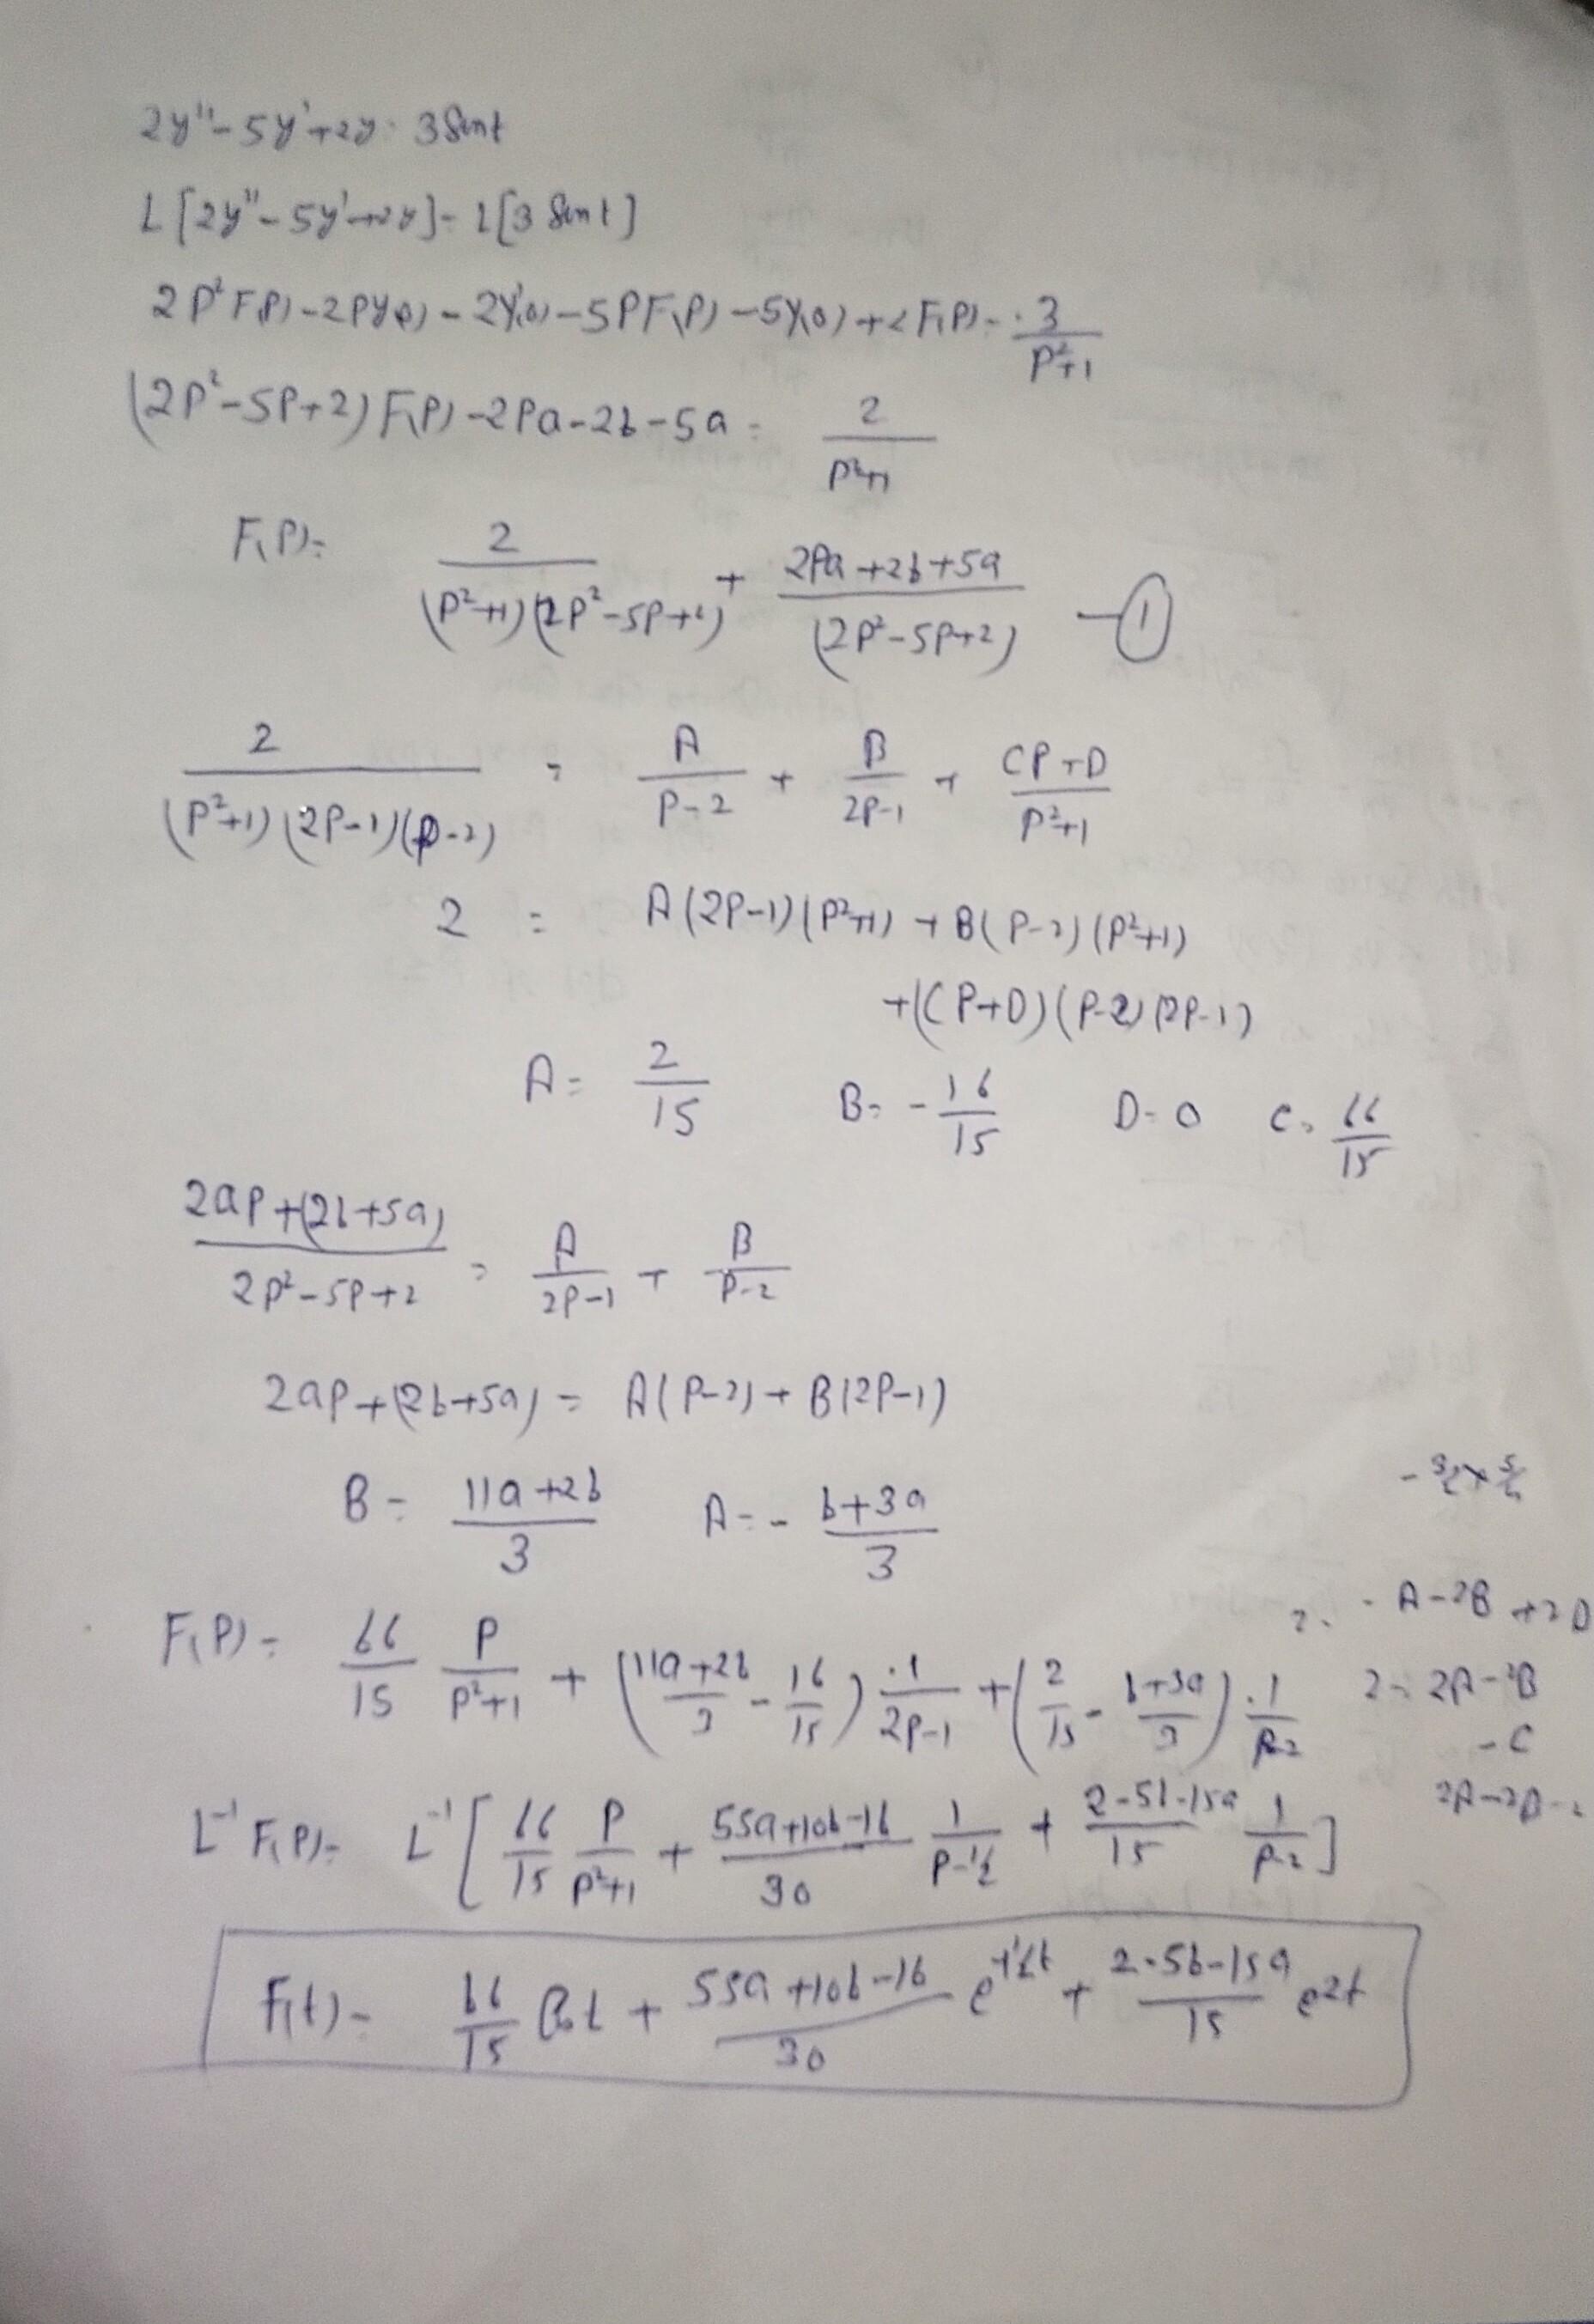 2y''-5y'+2y = 3 Sint
L[2y''-5y'+2y] = L[3 Sint]
2P²F(P)-2Py(0)-2y'(0)-5PF(P)-5y(0)+2F(P) = 3/(P²+1)
(2P²-5P+2)F(P)-2Pa-2b-5a = 2/(P²+1)
F(P) = 2/((P²+1)(2P²-5P+2)) + (2Pa+2b+5a)/(2P²-5P+2) —①
2/((P²+1)(2P-1)(P-2)) = A/(P-2) + B/(2P-1) + (CP+D)/(P²+1)
2 = A(2P-1)(P²+1) + B(P-2)(P²+1)
+(CP+D)(P-2)(2P-1)
A = 2/15 B = -16/15 D = 0 C = 66/15
(2aP+(2b+5a))/(2P²-5P+2) = A/(2P-1) + B/(P-2)
2aP+(2b+5a) = A(P-2) + B(2P-1)
B = (11a+2b)/3 A = -(b+3a)/3
F(P) = 66/15 P/(P²+1) + ((11a+2b)/3 - 16/15) · 1/(2P-1) + (2/15 - (b+3a)/3) · 1/(P-2)
- A-2B+2D
2 = 2A-2B
-C
L⁻¹F(P) = L⁻¹[66/15 P/(P²+1) + (55a+10b-16)/30 1/(P-½) + (2-5b-15a)/15 1/(P-2)]
F(t) = 66/15 Cost + (55a+10b-16)/30 e^(+½t) + (2-5b-15a)/15 e^(2t)